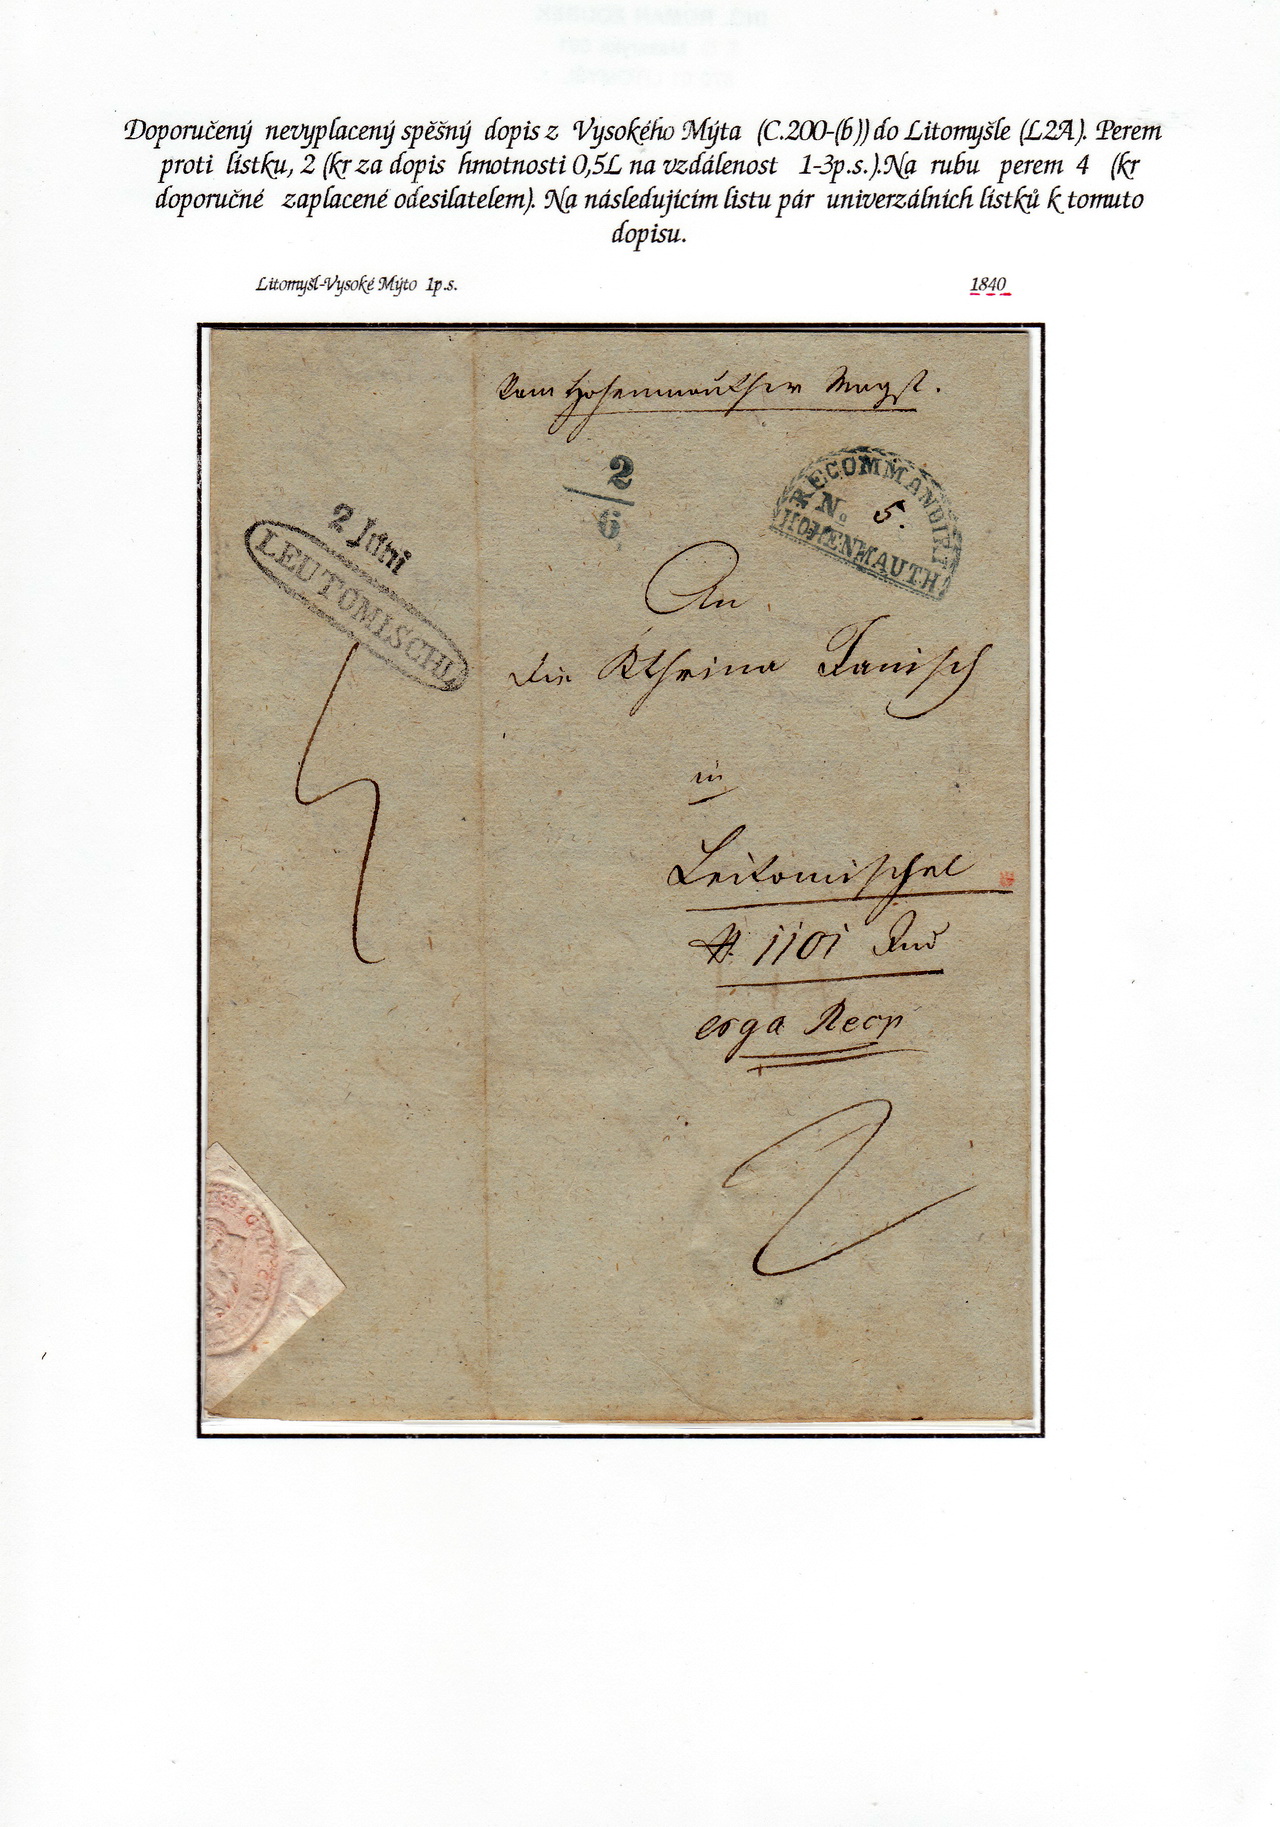 Doporučený nevyplacený spěšný dopis z Vysokého Mýta (C.200-(b)) do Litomyšle (L2A). Perem
proti lístku, 2 (kr za dopis hmotnosti 0,5L na vzdálenost 1-3p.s.).Na rubu perem 4 (kr
doporučné zaplacené odesilatelem). Na následujícím listu pár univerzálních lístků k tomuto
dopisu.
Litomyšl-Vysoké Mýto 1p.s.
1840
Vom Hohenmauther Magst.
2
6
RECOMMANDIRT
No. 5.
HOHENMAUTH
2 Juni
LEUTOMISCHL
An
die Kthrina Janisch
in
Leitomischel
1101
erga Recp
2